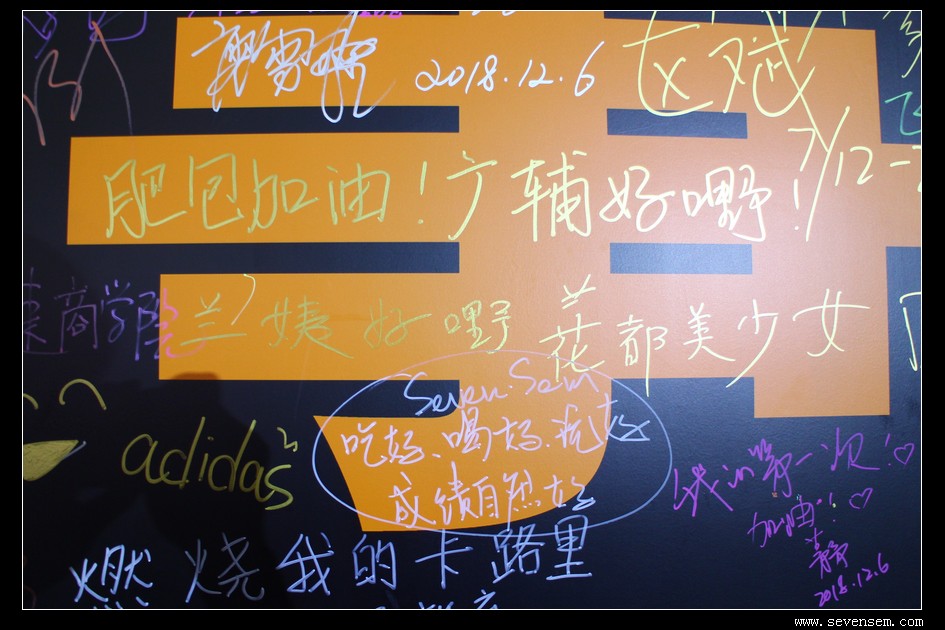 2018.12.6
肥包加油！广辅好嘢！
7/12-
商学院
兰姨好嘢
花都美少女
Seven.Sem
吃好、喝好、玩好
成绩自然好
adidas
我的第一次！♡
加油！！♡
2018.12.6
燃烧我的卡路里
www.sevensem.com